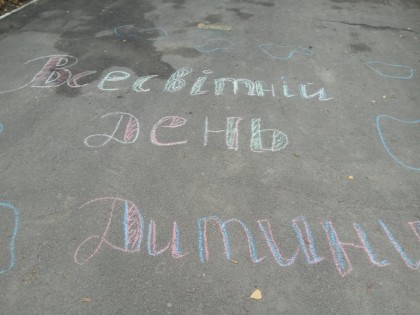 Всесвітній
день
Дитини